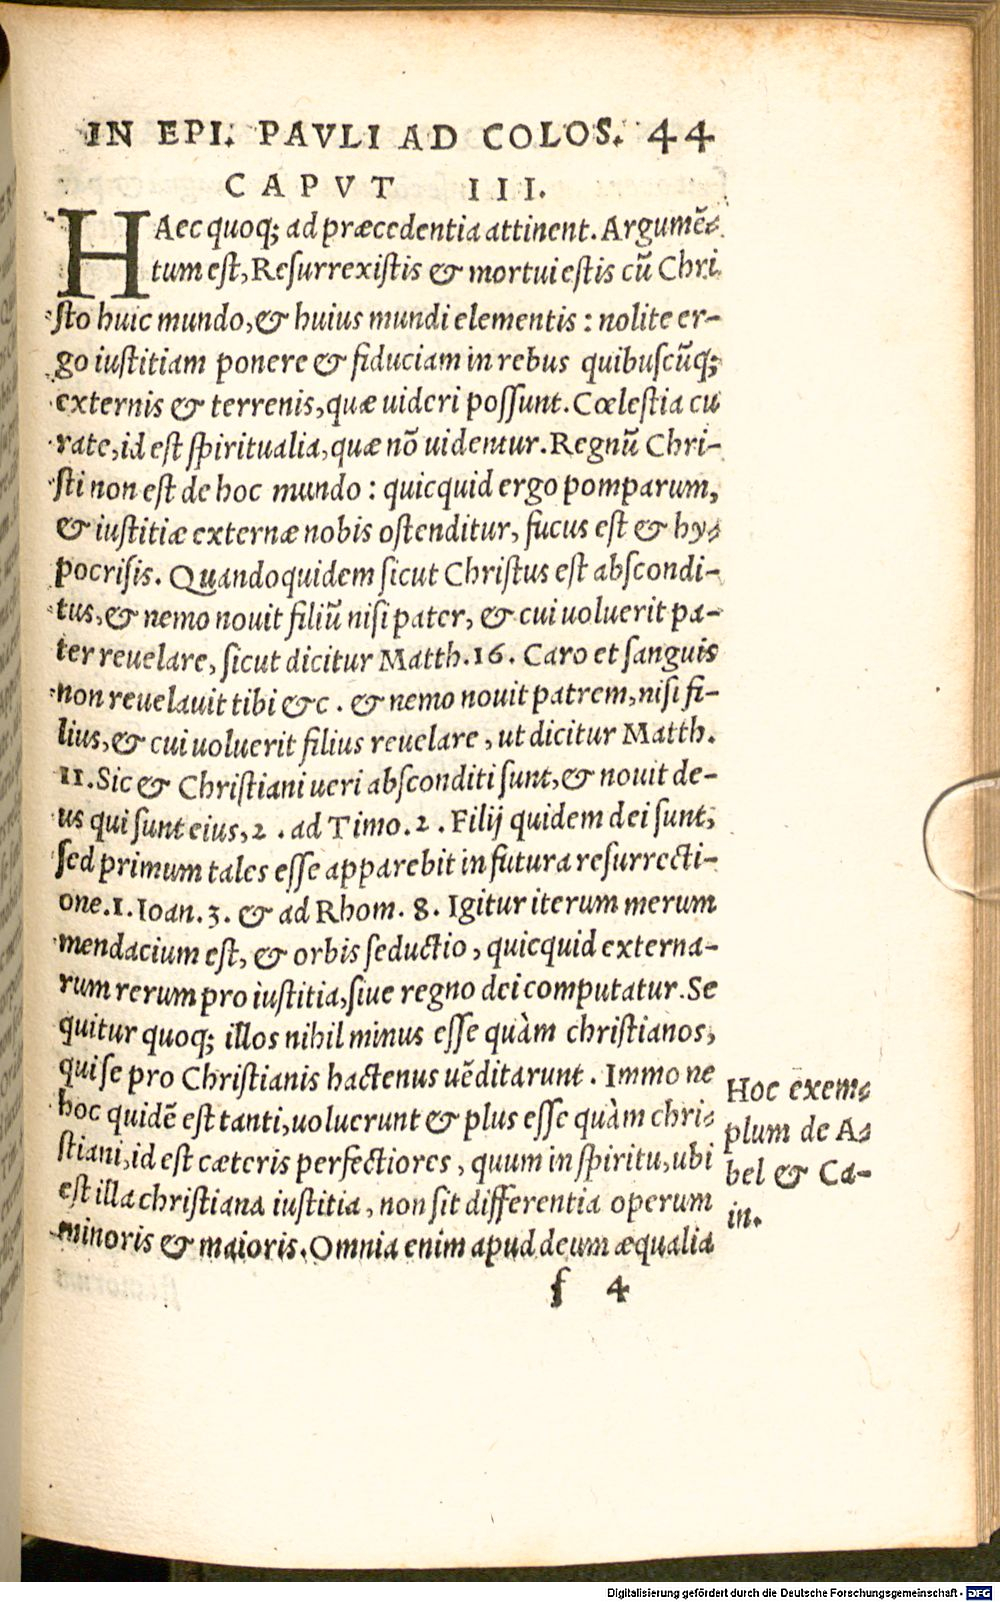 IN EPI. PAVLI AD COLOS. 44
CAPVT III.
HAec quoq; ad præcedentia attinent. Argumē-
tum est, Resurrexistis & mortui estis cū Chri
sto huic mundo, & huius mundi elementis : nolite er-
go iustitiam ponere & fiduciam in rebus quibuscūq;
externis & terrenis, quæ uideri possunt. Cœlestia cu
rate, id est spiritualia, quæ nō uidentur. Regnū Chri-
sti non est de hoc mundo : quicquid ergo pomparum,
& iustitiæ externæ nobis ostenditur, fucus est & hy-
pocrisis. Quandoquidem sicut Christus est abscondi-
tus, & nemo nouit filiū nisi pater, & cui uoluerit pa-
ter reuelare, sicut dicitur Matth. 16. Caro et sanguis
non reuelauit tibi &c. & nemo nouit patrem, nisi fi-
lius, & cui uoluerit filius reuelare, ut dicitur Matth.
11. Sic & Christiani ueri absconditi sunt, & nouit de-
us qui sunt eius, 2. ad Timo. 2. Filij quidem dei sunt,
sed primum tales esse apparebit in futura resurrecti-
one. 1. Ioan. 3. & ad Rhom. 8. Igitur iterum merum
mendacium est, & orbis seductio, quicquid externa-
rum rerum pro iustitia, siue regno dei computatur. Se
quitur quoq; illos nihil minus esse quàm christianos,
qui se pro Christianis hactenus uēditarunt. Immo ne
hoc quidē est tanti, uoluerunt & plus esse quàm chri-
stiani, id est cæteris perfectiores, quum in spiritu, ubi
est illa christiana iustitia, non sit differentia operum
minoris & maioris. Omnia enim apud deum æqualia
Hoc exem-
plum de A-
bel & Ca-
in.
f 4
Digitalisierung gefördert durch die Deutsche Forschungsgemeinschaft - DFG